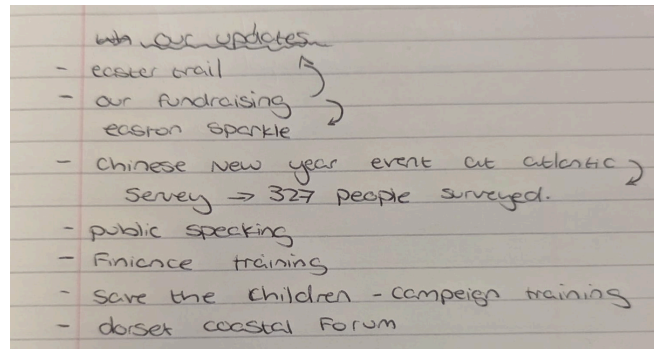 our updates
- easter trail
- our fundraising
easton sparkle
- Chinese New year event at atlantic
Servey → 327 people surveyed.
- public specking
- Finience training
- Save the Children - campeign training
- dorset coastal Forum